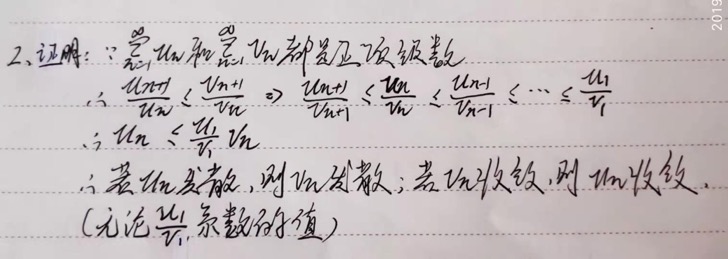 2、证明：∵ ∑_{n=1}^{∞} Un 和 ∑_{n=1}^{∞} Vn 都是正项级数
∴ U_{n+1}/U_n ≤ V_{n+1}/V_n ⇒ U_{n+1}/V_{n+1} ≤ U_n/V_n ≤ U_{n-1}/V_{n-1} ≤ ⋯ ≤ U_1/V_1
∴ U_n ≤ U_1/V_1 V_n
∴ 若Un发散，则Vn发散；若Vn收敛，则Un收敛.
(无论 U_1/V_1 系数的值)
2019